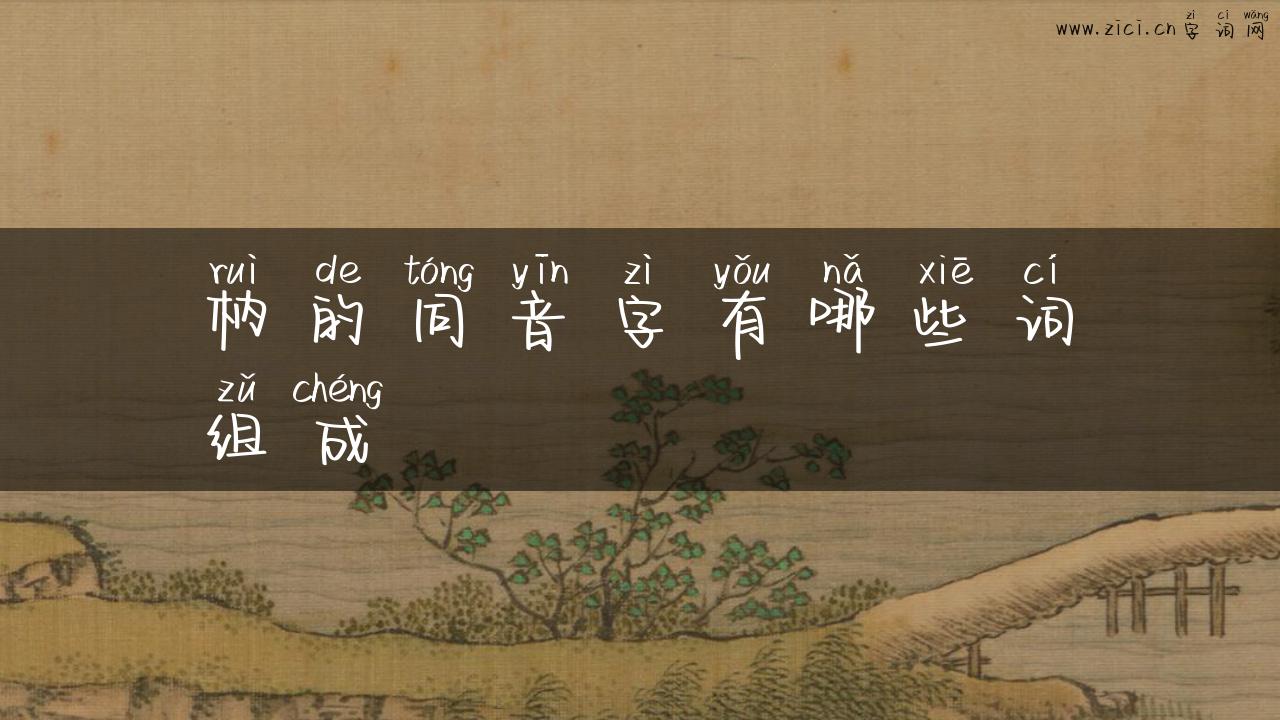 zì cí wǎng
www.zici.cn 字词网
ruì de tóng yīn zì yǒu nǎ xiē cí
枘的同音字有哪些词
zǔ chéng
组成